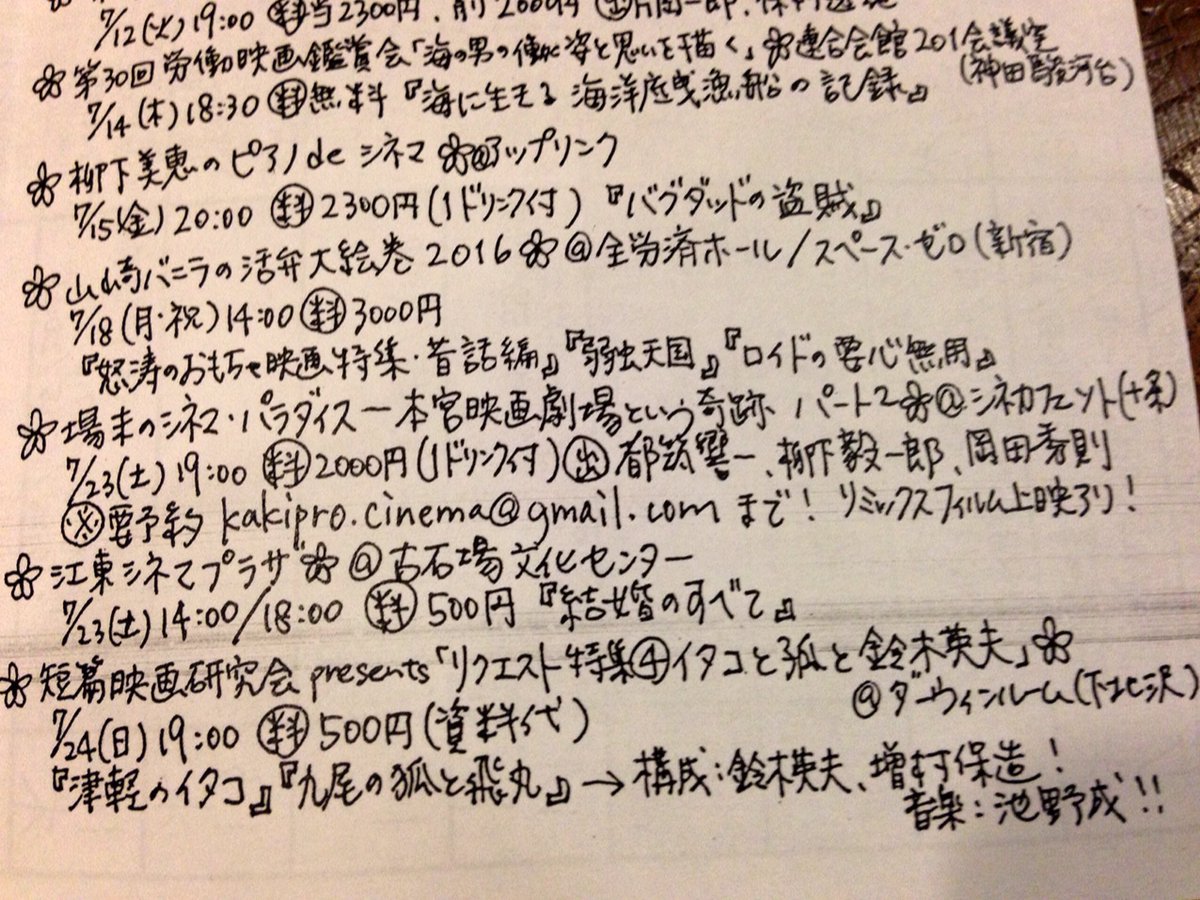 7/12(火)19:00 ㊕当2300円、前2000円 ㊓片岡一郎、
❀第30回 労働映画鑑賞会「海の男の働く姿と思いを描く」❀連合会館201会議室
(神田駿河台)
7/14(木)18:30 ㊕無料『海に生きる 海洋底曳漁船の記録』
❀柳下美恵のピアノdeシネマ❀@アップリンク
7/15(金)20:00 ㊕2300円(1ドリンク付)『バグダッドの盗賊』
❀山崎バニラの活弁大絵巻2016❀@全労済ホール/スペース・ゼロ(新宿)
7/18(月・祝)14:00 ㊕3000円
『怒涛のおもちゃ映画特集・昔話編』『弱虫天国』『ロイドの要心無用』
❀場末のシネマ・パラダイスー本宮映画劇場という奇跡 パート2❀@シネカフェソト(十条)
7/23(土)19:00 ㊕2000円(1ドリンク付)㊓都築響一、柳下毅一郎、岡田秀則
※要予約 kakipro.cinema@gmail.comまで! リミックスフィルム上映アリ!
❀江東シネマプラザ❀@古石場文化センター
7/23(土)14:00/18:00 ㊕500円『結婚のすべて』
❀短篇映画研究会presents「リクエスト特集④イタコと狐と鈴木英夫」❀
@ダーウィンルーム(下北沢)
7/24(日)19:00 ㊕500円(資料代)
『津軽のイタコ』『九尾の狐と飛丸』→構成:鈴木英夫、増村保造!
音楽:池野成!!